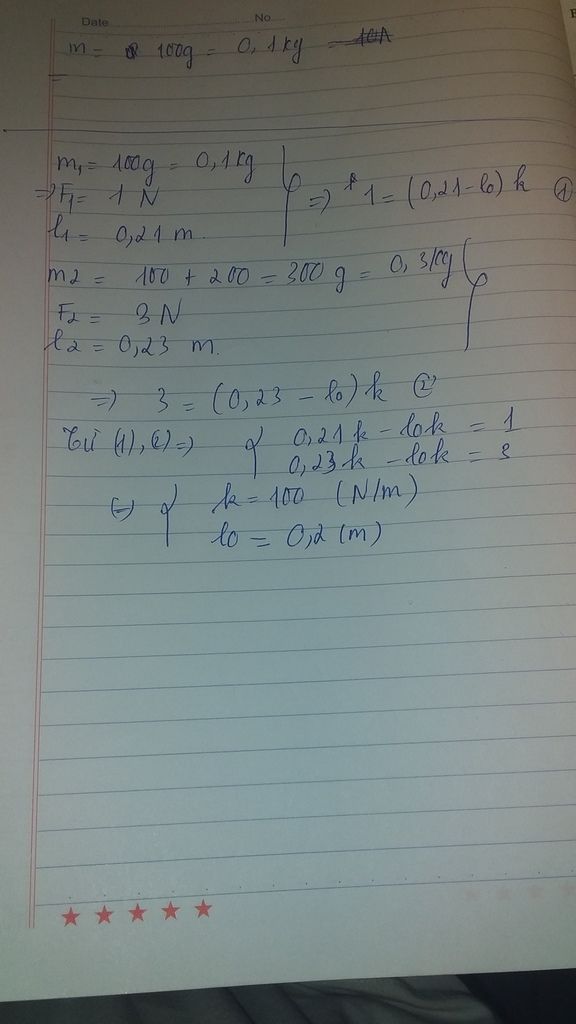 Date No
m = 100g = 0,1kg
m1 = 100g = 0,1kg
=> F1 = 1 N => 1 = (0,21 - l0) k ①
l1 = 0,21 m.
m2 = 100 + 200 = 300 g = 0,3kg
F2 = 3N
l2 = 0,23 m.
=> 3 = (0,23 - l0) k ②
Từ (1), (2) => { 0,21k - l0k = 1
0,23k - l0k = 3
(=) { k = 100 (N/m)
l0 = 0,2 (m)